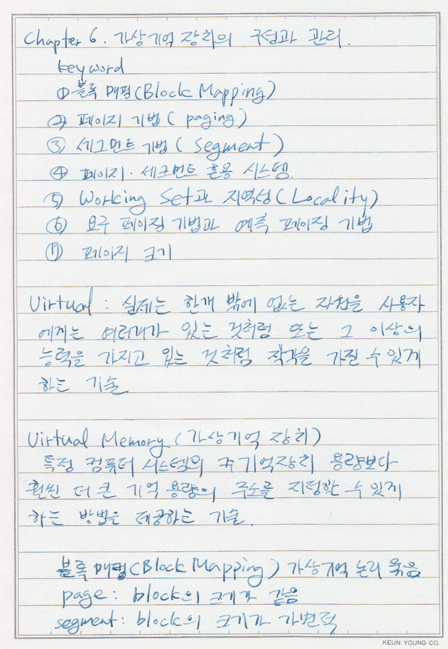 Chapter 6. 가상기억 장치의 구성과 관리.
keyword
① 블록 매핑(Block Mapping)
② 페이지 기법( paging)
③ 세그먼트 기법( segment)
④ 페이지·세그먼트 혼용 시스템.
⑤ Working Set과 지역성(Locality)
⑥ 요구 페이징 기법과 예측 페이징 기법
⑦ 페이지 크기
Virtual : 실제는 한개 밖에 없는 자원을 사용자
에게는 여러개가 있는 것처럼 또는 그 이상의
능력을 가지고 있는 것처럼 착각을 가질 수 있게
하는 기술.
Virtual Memory (가상기억 장치)
특정 컴퓨터 시스템의 주기억장치 용량보다
훨씬 더 큰 기억 용량의 주소를 지정할 수 있게
하는 방법을 제공하는 기술.
블록 매핑(Block Mapping) 가상기억 논리 묶음
page : block의 크기가 같음
segment : block의 크기가 가변적
KEUN YOUNG CO.